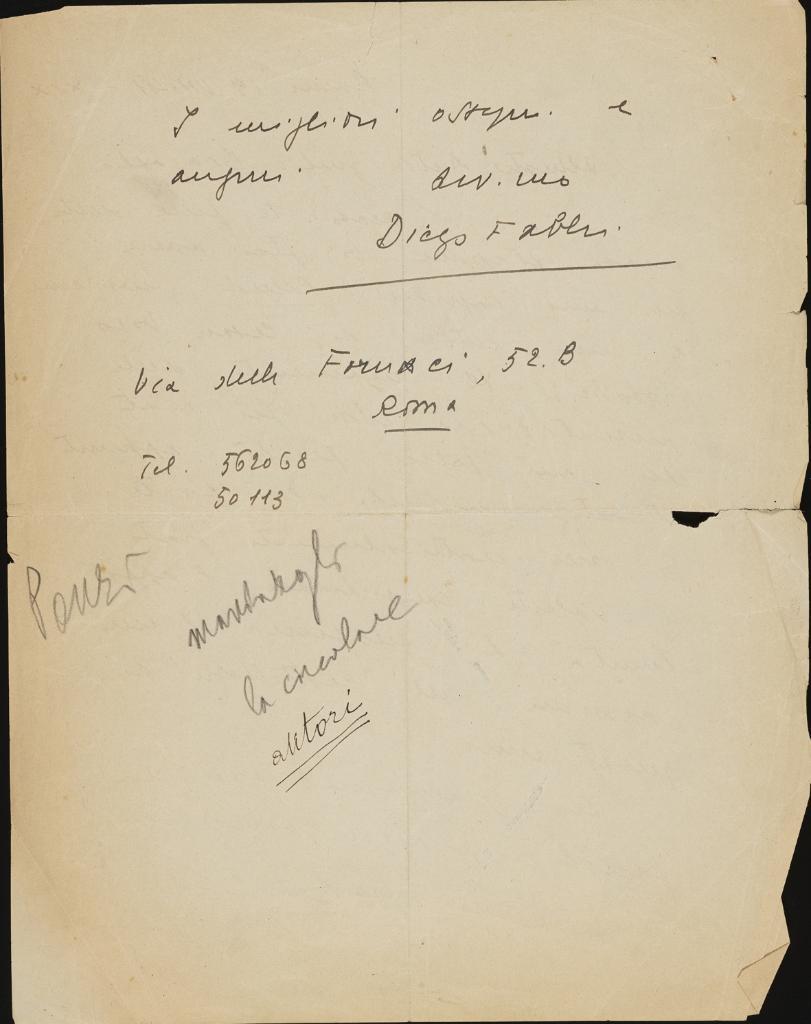 I migliori ossequi e
auguri. dev.mo
Diego Fabbri.
Via delle Fornaci, 52. B
Roma
Tel. 562068
50113
Ponzi
mandategli
la circolare
autori